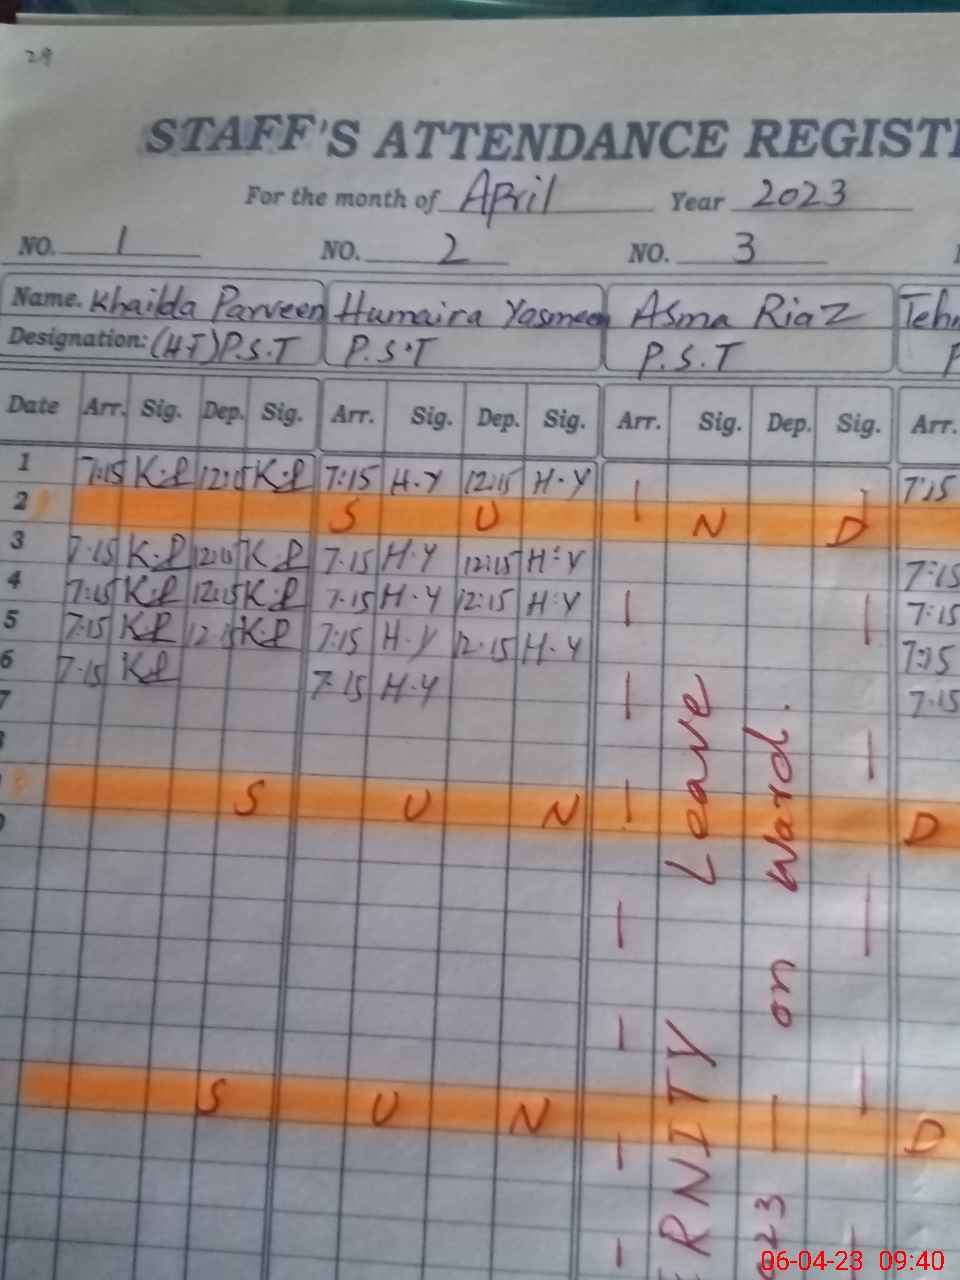 29
STAFF'S ATTENDANCE REGIST
For the month of April Year 2023
NO. 1 NO. 2 NO. 3
Name. Khailda Parveen Humaira Yasmeen Asma Riaz Teh
Designation: (H.T) P.S.T P.S.T P.S.T P
Date Arr. Sig. Dep. Sig. Arr. Sig. Dep. Sig. Arr. Sig. Dep. Sig. Arr.
1 7:15 K.P 12:15 K.P 7:15 H.Y 12:15 H.Y 7:15
2 S U N D
3 7.15 K.P 12:15 K.P 7.15 H.Y 12:15 H.Y 7:15
4 7:15 K.P 12:15 K.P 7.15 H.Y 12:15 H.Y 7:15
5 7:15 K.P 12:15 K.P 7:15 H.Y 12.15 H.Y 7:15
6 7.15 K.P 7.15 H.Y 7.15
7
S U N D
S U N D
RNITY Leave
23 — on ward.
06-04-23 09:40